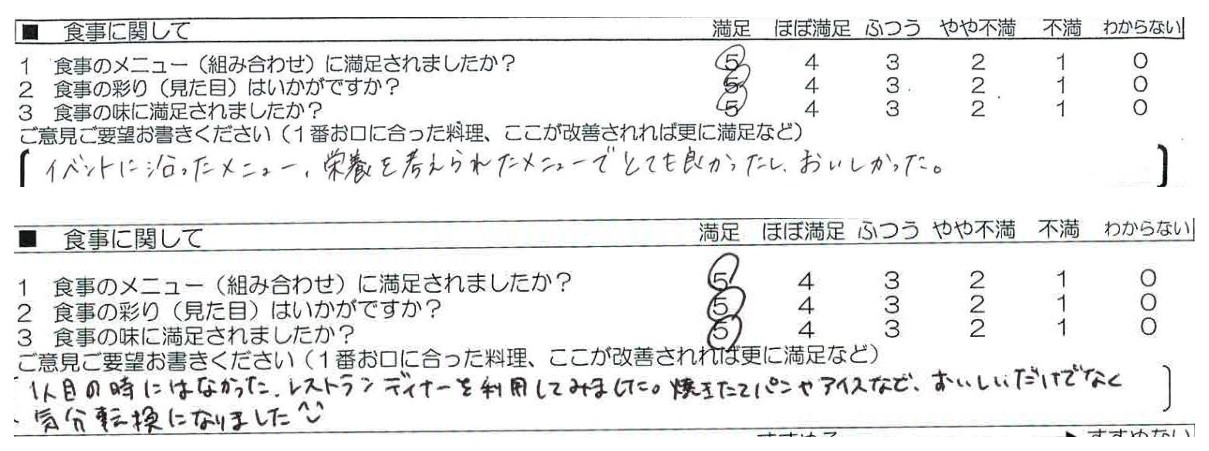 ■ 食事に関して 満足 ほぼ満足 ふつう やや不満 不満 わからない
1 食事のメニュー（組み合わせ）に満足されましたか？ 5 4 3 2 1 0
2 食事の彩り（見た目）はいかがですか？ 5 4 3 2 1 0
3 食事の味に満足されましたか？ 5 4 3 2 1 0
ご意見ご要望お書きください（１番お口に合った料理、ここが改善されれば更に満足など）
イベントに沿ったメニュー、栄養を考えられたメニューでとても良かったし、おいしかった。
■ 食事に関して 満足 ほぼ満足 ふつう やや不満 不満 わからない
1 食事のメニュー（組み合わせ）に満足されましたか？ 5 4 3 2 1 0
2 食事の彩り（見た目）はいかがですか？ 5 4 3 2 1 0
3 食事の味に満足されましたか？ 5 4 3 2 1 0
ご意見ご要望お書きください（１番お口に合った料理、ここが改善されれば更に満足など）
1人目の時にはなかった、レストランディナーを利用してみました。焼きたてパンやアイスなど、おいしいだけでなく
気分転換になりました